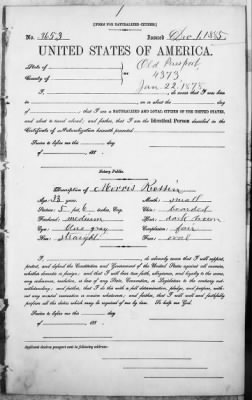 [FORM FOR NATURALIZED CITIZEN.]
No. 3653 Issued Dec 1, 1885
UNITED STATES OF AMERICA.
State of
County of
Old Passport
4373
Jan. 22. 1878
I, do swear that I was born
in on or about the day
of , that I am a NATURALIZED AND LOYAL CITIZEN OF THE UNITED STATES,
and about to travel abroad; and further, that I am the Identical Person described in the
Certificate of Naturalization herewith presented.
Sworn to before me this day
of 188 .
Notary Public.
Description of Morris
Age: 33 years. Mouth: small
Stature: 5 feet 6 inches, Eng. Chin: bearded
Forehead: medium Hair: dark brown
Eyes: blue gray Complexion: fair
Nose: straight Face: oval
I, , do solemnly swear that I will support,
protect, and defend the Constitution and Government of the United States against all enemies,
whether domestic or foreign; and that I will bear true faith, allegiance, and loyalty to the same,
any ordinance, resolution, or law of any State, Convention, or Legislature to the contrary not-
withstanding; and further, that I do this with a full determination, pledge, and purpose, with-
out any mental reservation or evasion whatsoever; and further, that I will well and faithfully
perform all the duties which may be required of me by law. So help me God.
Sworn to before me this day
of 188 .
Applicant desires passport sent to following address: